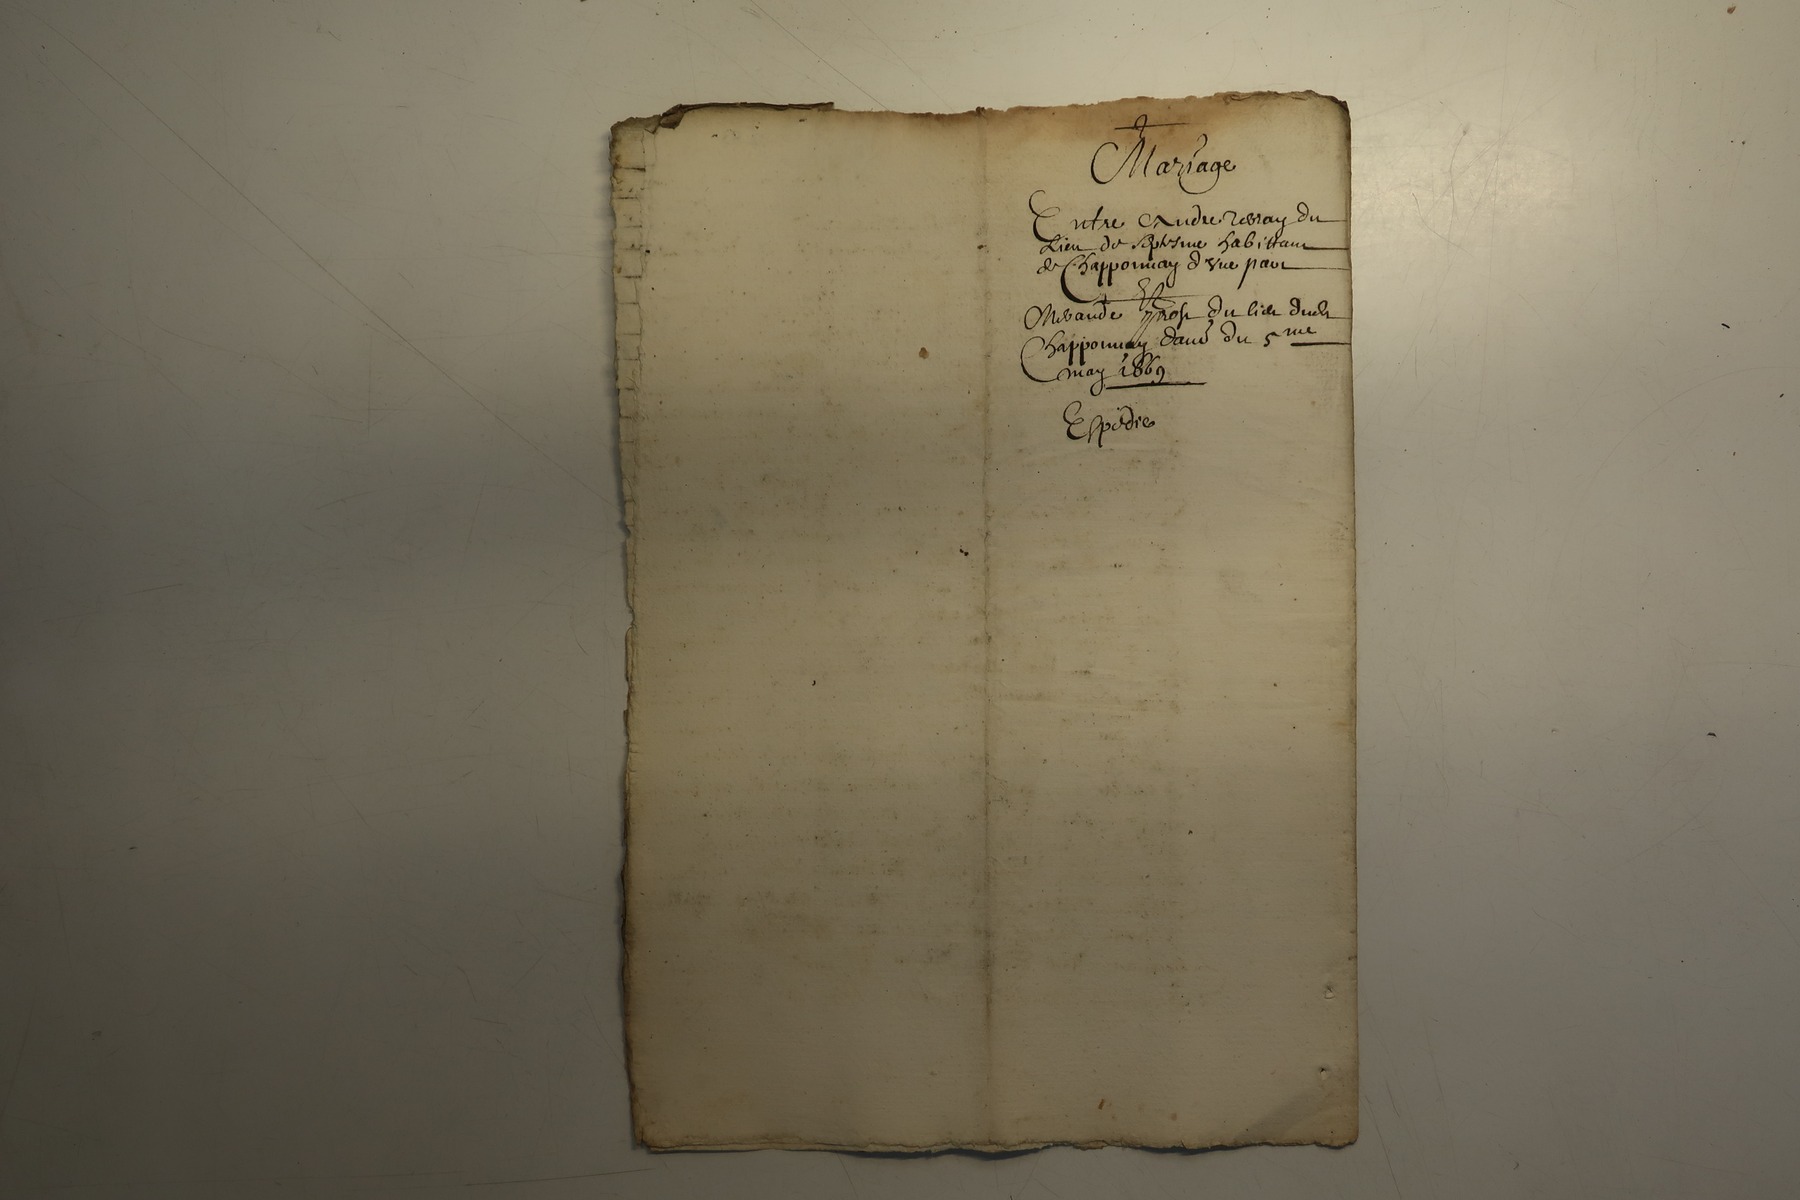 Mariage
Entre Andre Revay du
Lieu de septesme habittant
de Chapponnay d'vne part
Et
Meraude du lieu dudt
Chapponnay datté du 5me
may 1669
Espedie